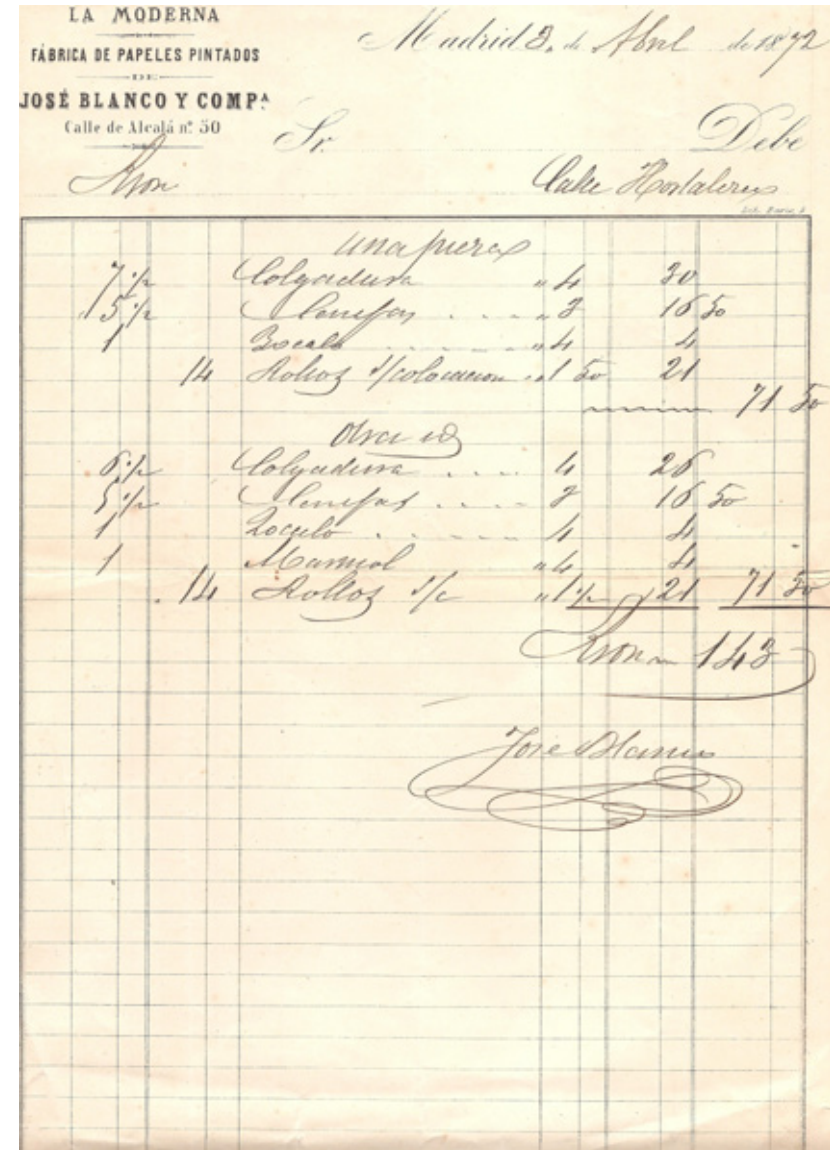 LA MODERNA
FÁBRICA DE PAPELES PINTADOS
DE
JOSÉ BLANCO Y COMPª
Calle de Alcalá nº 50
Madrid 3 de Abril de 1872
Sr. Debe
Calle Hortaleza
una pieza
7 ½ Colgadura " 4 30
5 ½ Cenefas " 3 16 50
1 Zocalo " 4 4
14 Rollos s/colocacion " 1 50 21
71 50
Otra id
6 ½ Colgadura 4 26
5 ½ Cenefas 3 16 50
1 Zocalo 4 4
1 Marmol " 4 4
14 Rollos s/c " 1 ½ 21 71 50
143
Jose Blanco